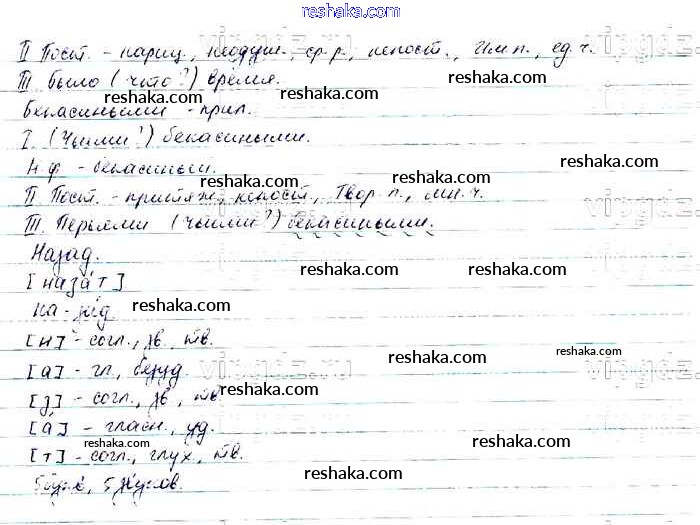 reshaka.com
II Пост. - нариц., неодуш., ср. р., непост., Им. п., ед. ч.
vipgdz.ru vipgdz.
III было (что?) время.
reshaka.com reshaka.com
Бекасиными - прил.
I. (Чьими?) бекасиными.
Н. ф. - бекасиный.
reshaka.com reshaka.com
II Пост. - притяж., непост., Твор. п., мн. ч.
vipgdz.ru vipgdz.
III. Перьями (чьими?) бекасиными.
Назад.
reshaka.com reshaka.com
[назат]
На-зад
reshaka.com reshaka.com
[н] - согл., зв., тв.
reshaka.com reshaka.com
[а] - гл., безуд.
vipgdz.ru vipgdz.
reshaka.com
[з] - согл., зв., тв.
reshaka.com
[а] - гласн., уд.
reshaka.com reshaka.com
[т] - согл., глух., тв.
5 букв, 5 звуков.
reshaka.com